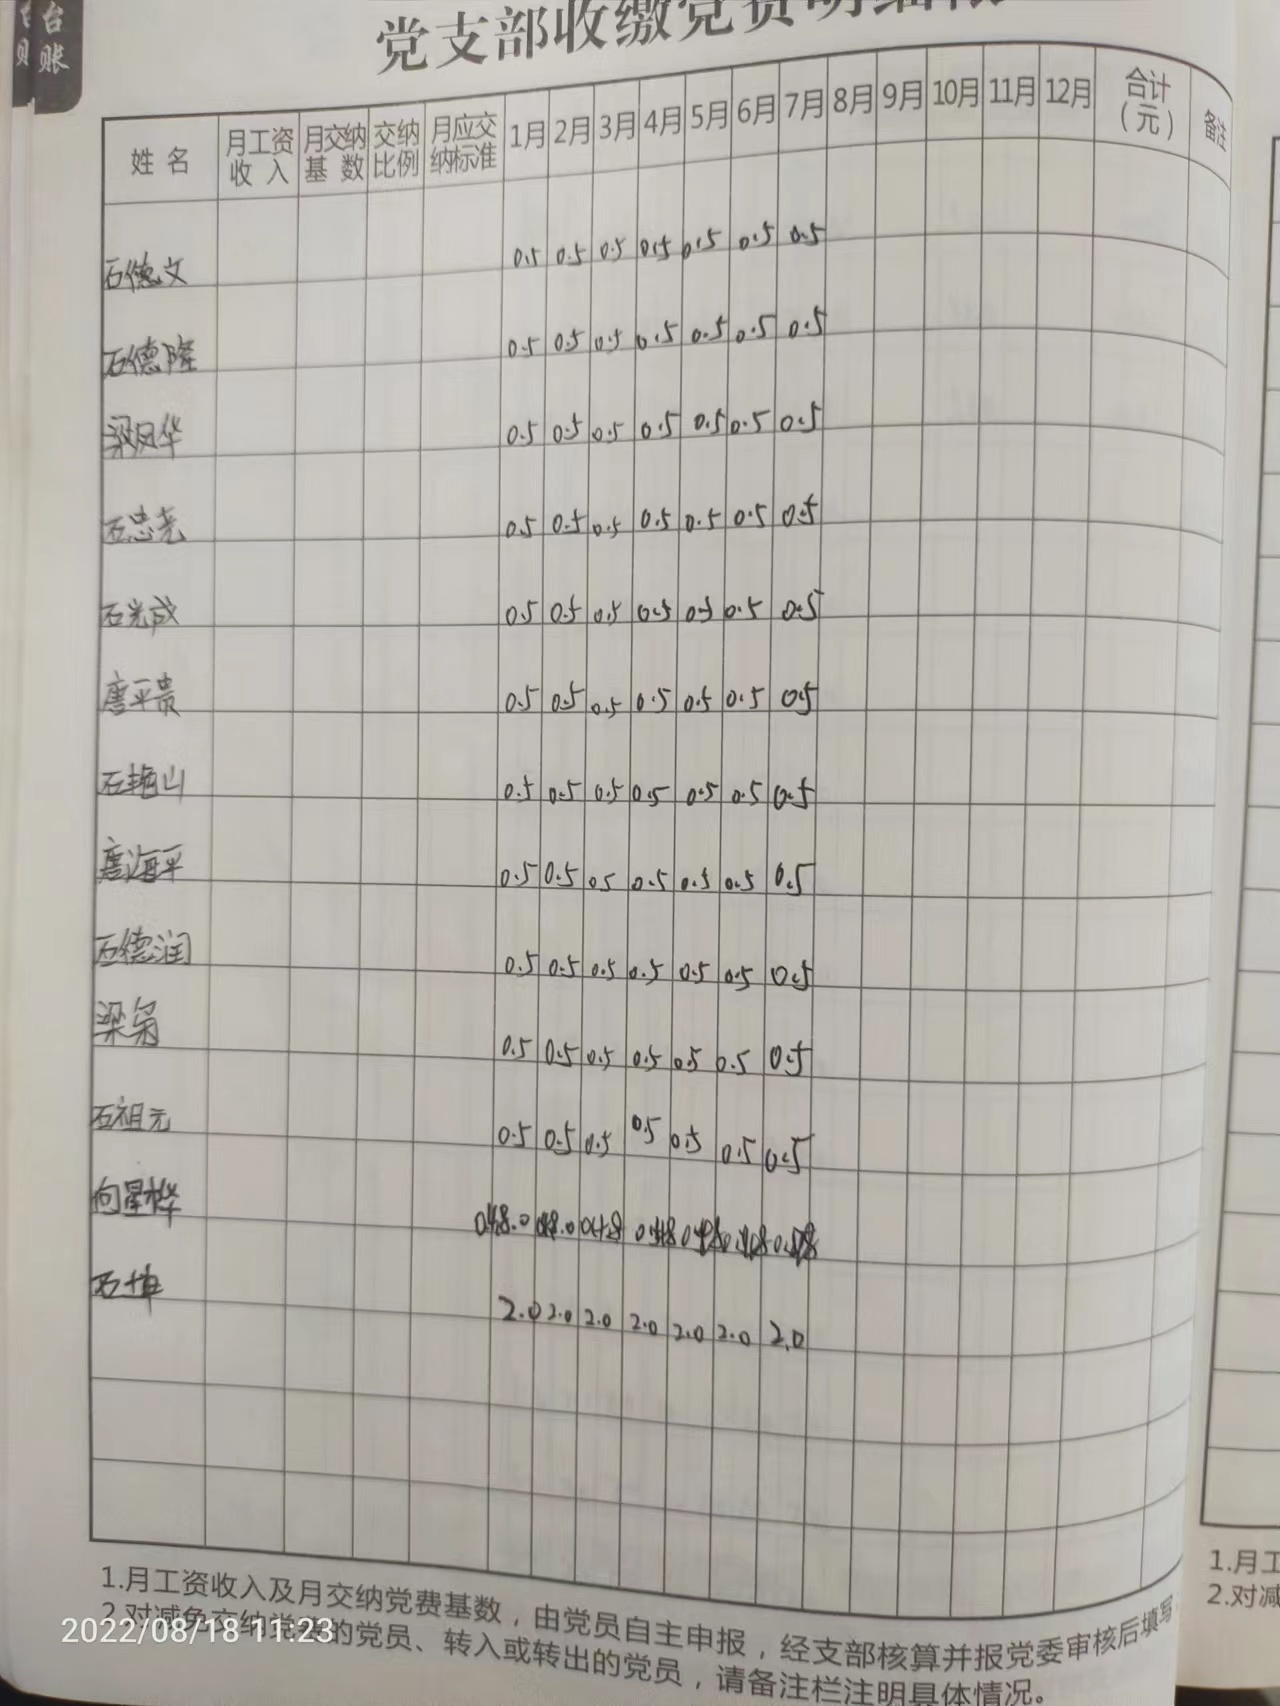 台账
党支部收缴党费明细
姓名 月工资收入 月交纳基数 交纳比例 月应交纳标准 1月 2月 3月 4月 5月 6月 7月 8月 9月 10月 11月 12月 合计(元) 备注
石德文 0.5 0.5 0.5 0.5 0.5 0.5 0.5
石德隆 0.5 0.5 0.5 0.5 0.5 0.5 0.5
梁凤华 0.5 0.5 0.5 0.5 0.5 0.5 0.5
石忠尧 0.5 0.5 0.5 0.5 0.5 0.5 0.5
石光成 0.5 0.5 0.5 0.5 0.5 0.5 0.5
唐平贵 0.5 0.5 0.5 0.5 0.5 0.5 0.5
石艳山 0.5 0.5 0.5 0.5 0.5 0.5 0.5
唐海平 0.5 0.5 0.5 0.5 0.5 0.5 0.5
石德润 0.5 0.5 0.5 0.5 0.5 0.5 0.5
梁枭 0.5 0.5 0.5 0.5 0.5 0.5 0.5
石祖元 0.5 0.5 0.5 0.5 0.5 0.5 0.5
向星桦
石坤 2.0 2.0 2.0 2.0 2.0 2.0 2.0
1.月工资收入及月交纳党费基数，由党员自主申报，经支部核算并报党委审核后填写
2.对减免交纳党费的党员、转入或转出的党员，请备注栏注明具体情况。
2022/08/18 11:23
1.月工
2.对减